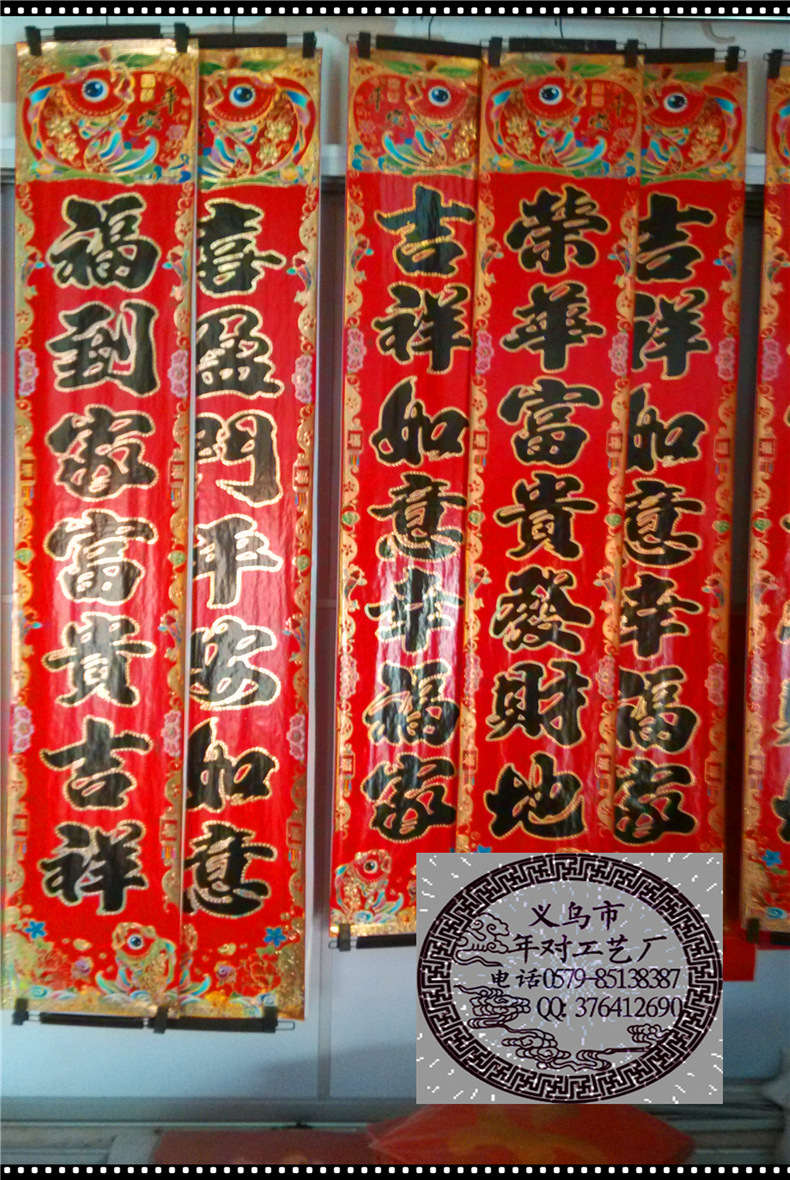 福到家富貴吉祥
喜盈門平安如意
吉祥如意幸福家
榮華富貴發財地
吉祥如意幸福家
义乌市
年对工艺厂
电话0579-85138387
QQ: 376412690